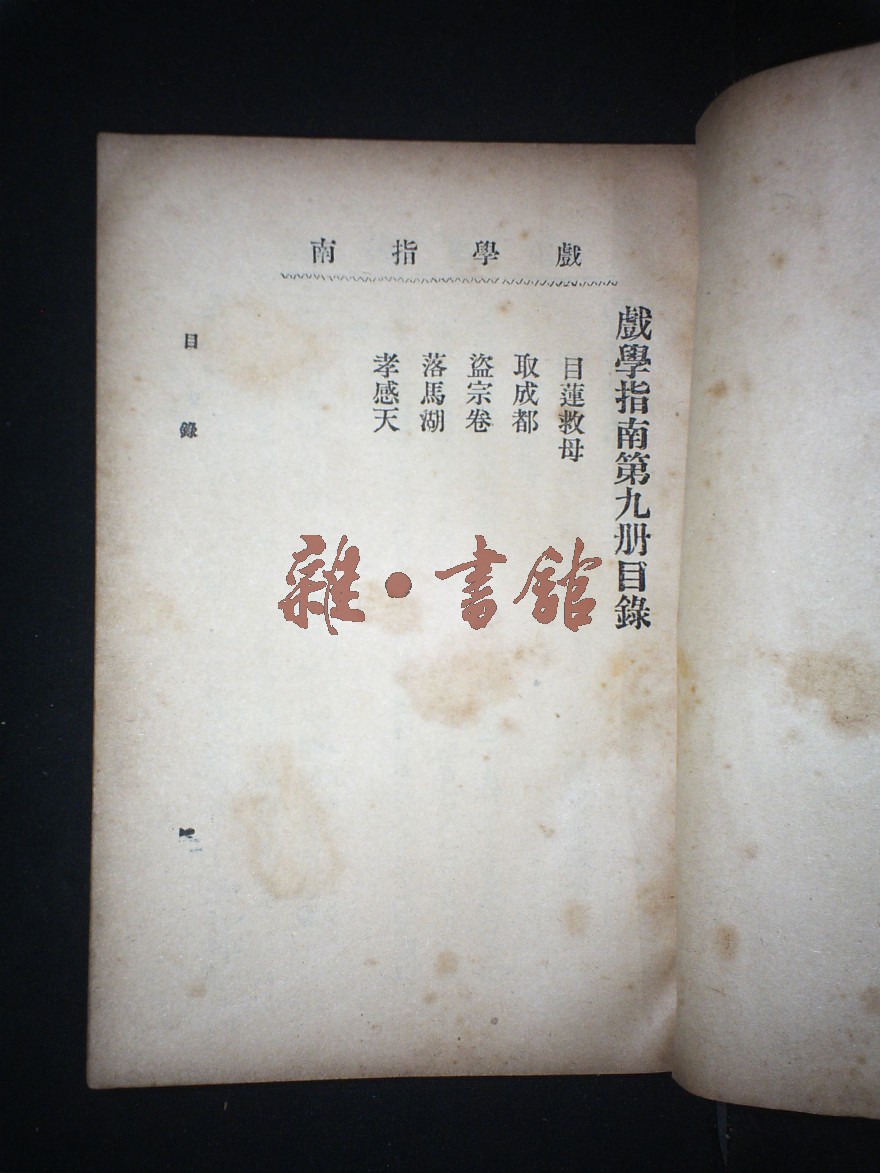 戲學指南
戲學指南第九册目錄
目蓮救母
取成都
盜宗卷
落馬湖
孝感天
目錄
雜·書館